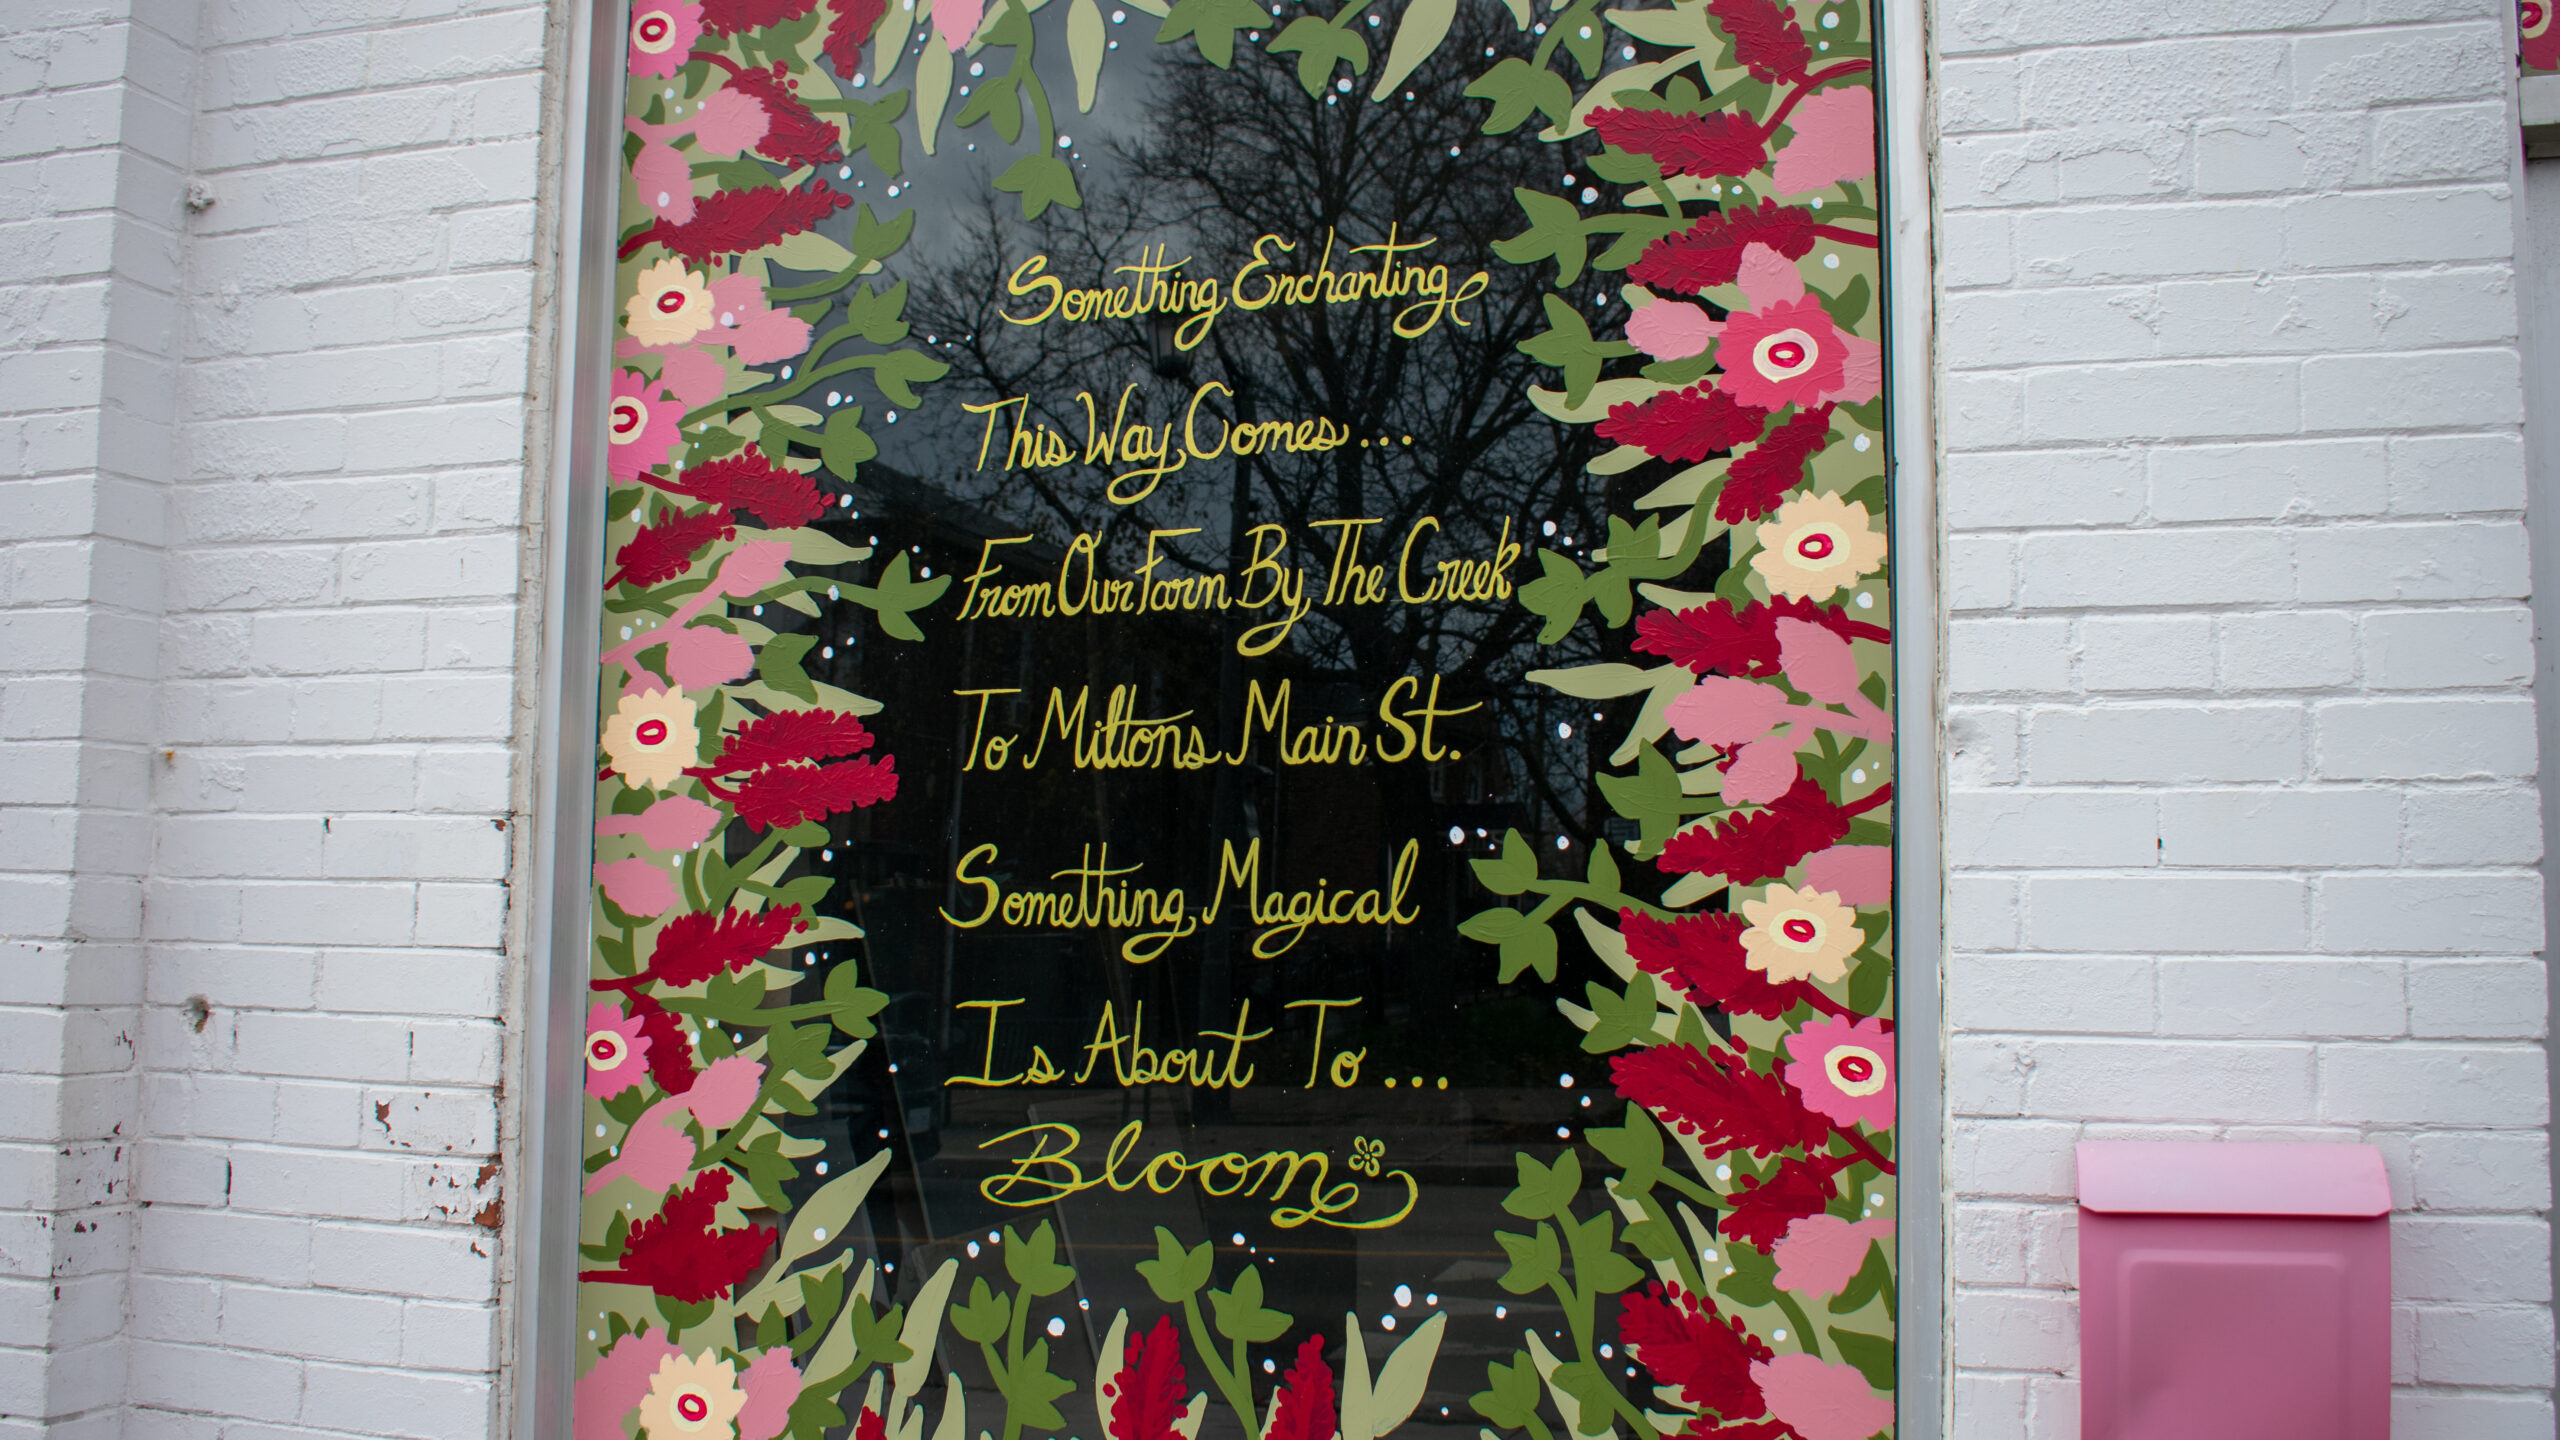 Something Enchanting
This Way Comes...
From Our Farm By The Creek
To Miltons Main St.
Something Magical
Is About To...
Bloom